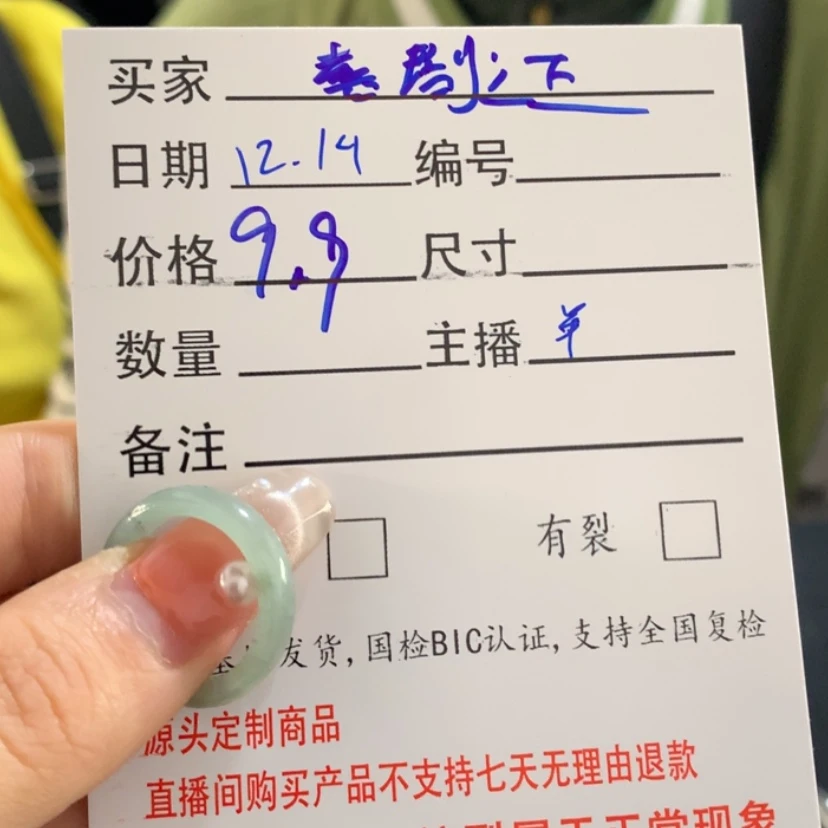 买家
日期 12.14 编号
价格 9.9 尺寸
数量 主播 单
备注
有裂
发货,国检BIC认证,支持全国复检
源头定制商品
直播间购买产品不支持七天无理由退款